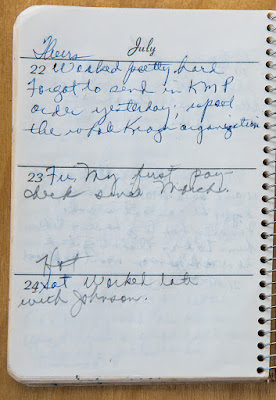 Thurs July
22 Worked pretty hard
Forgot to send in KMP
order yesterday; upset
the whole Kragh organization
23 Fri. My first pay-
check since March.
Hot
24 Sat Worked late
with Johnson.